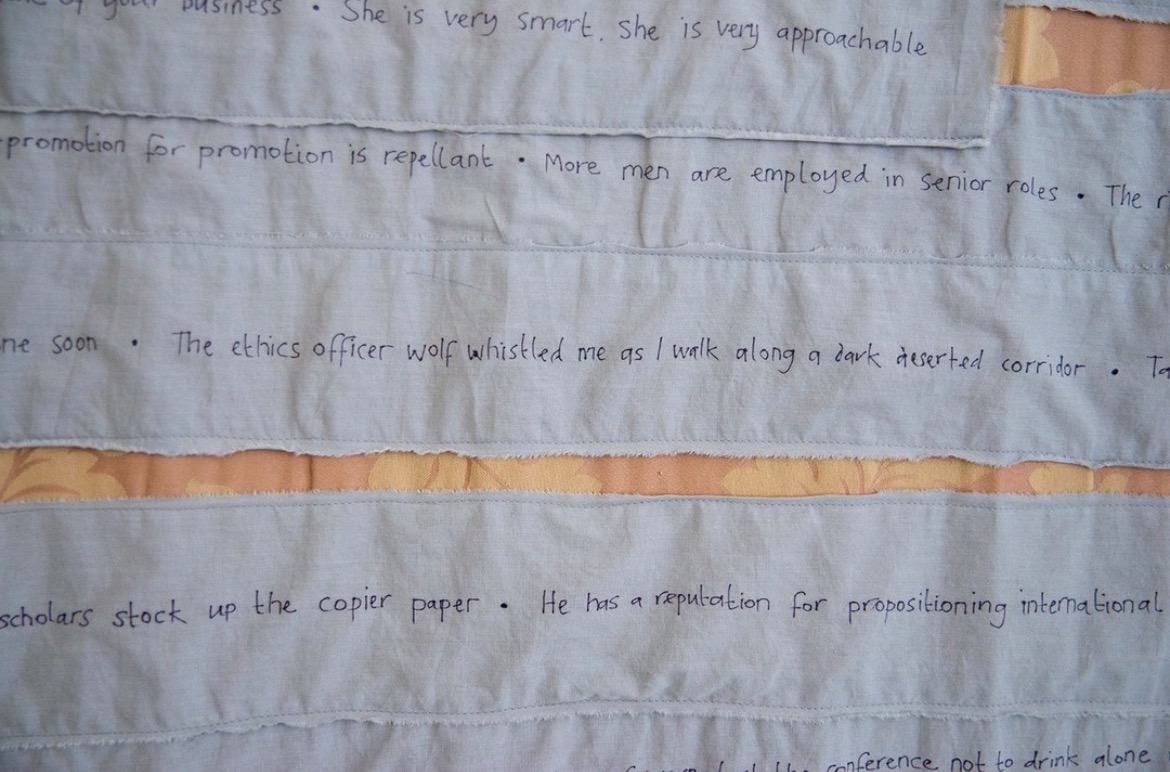 of your business • She is very smart. She is very approachable
-promotion for promotion is repellant • More men are employed in senior roles • The
soon • The ethics officer wolf whistled me as I walk along a dark deserted corridor •
scholars stock up the copier paper • He has a reputation for propositioning international
conference not to drink alone